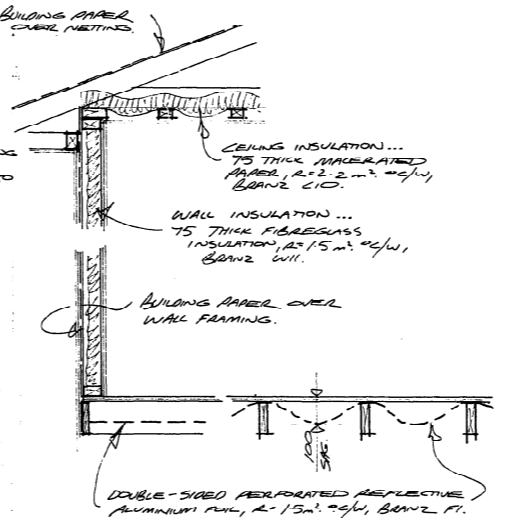 BUILDING PAPER
OVER NETTING.
CEILING INSULATION...
75 THICK MACERATED
PAPER, R=2.2 m². °C/W,
BRANZ C10.
WALL INSULATION...
75 THICK FIBREGLASS
INSULATION, R=1.5 m². °C/W,
BRANZ W11.
BUILDING PAPER OVER
WALL FRAMING.
100
SAG
DOUBLE-SIDED PERFORATED REFLECTIVE
ALUMINIUM FOIL, R-1.5m². °C/W, BRANZ F1.